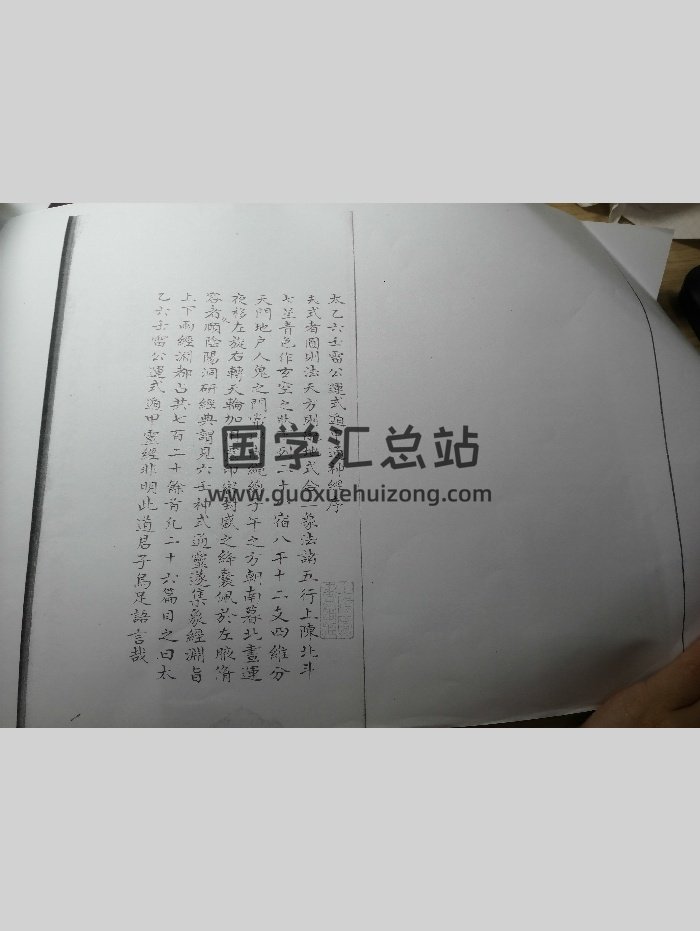 太乙六壬雷公運式遁甲通神經序
夫式者圓則法天方
法諸五行上陳北斗
七星青色作玄空之
宿八干十二支四維分
天門地户人鬼之門
子午之方朝南暮北晝運
夜移左旋右轉天輪加
盛之絳囊佩於左腋
客者頤陰陽洞研經典
見六壬神式通靈遂集衆經淵旨
上下兩經淵都占共七百二十餘首凡二十六篇目之曰太
乙六壬雷公運式遁甲靈經非明此道君子烏足語言哉
国学汇总站
www.guoxuehuizong.com